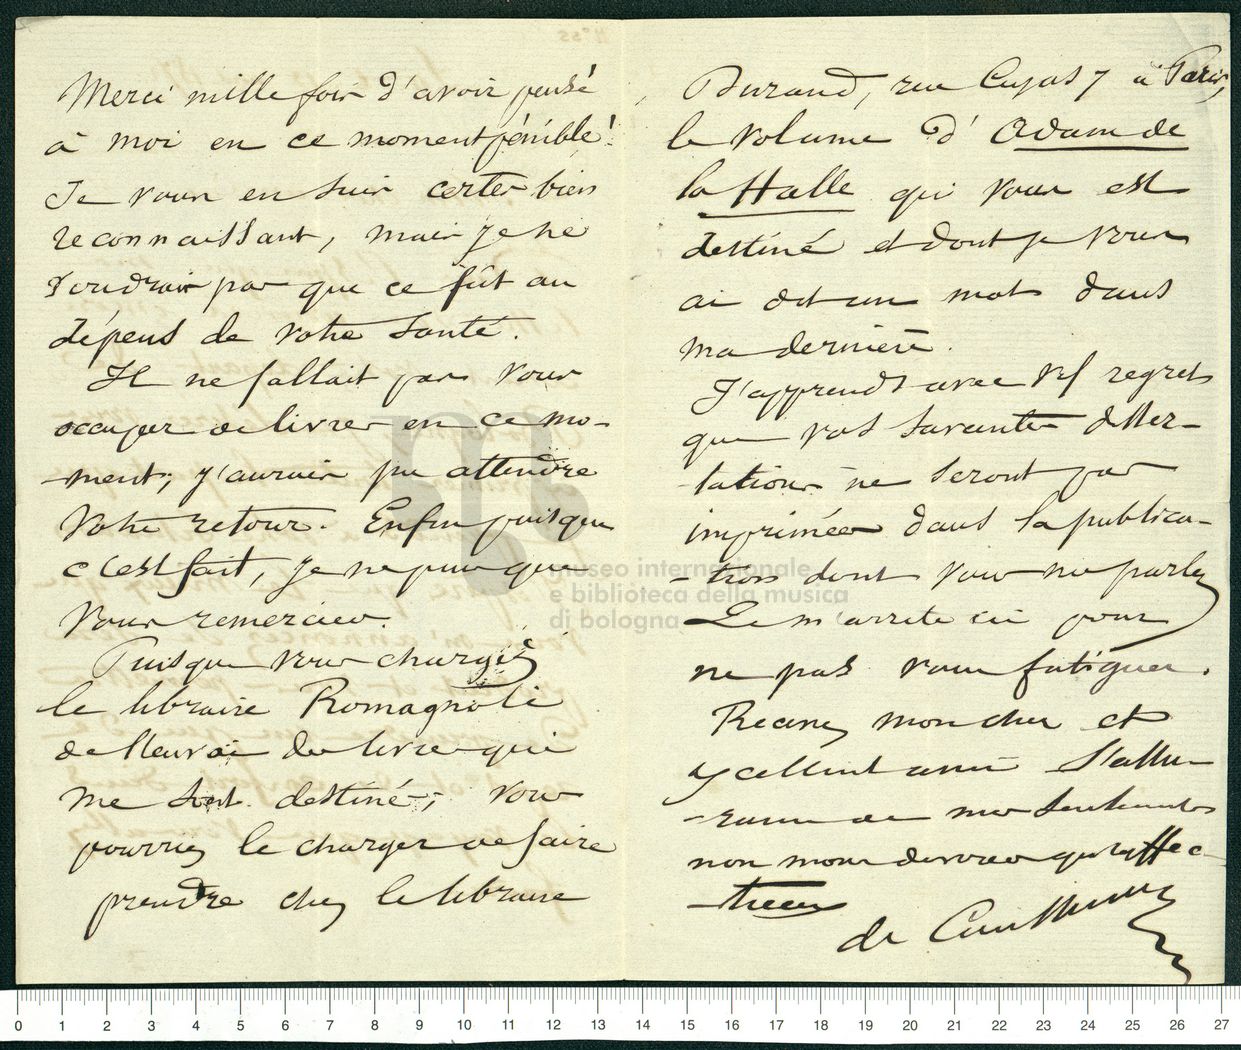 Merci mille fois d'avoir pensé
à moi en ce moment pénible!
Je vous en suis certes bien
reconnaissant, mais je ne
voudrais pas que ce fût au
dépens de votre santé.
Il ne fallait pas vous
occuper de livres en ce mo-
ment; j'aurais pu attendre
votre retour. Enfin puisque
c'est fait, je ne puis que
vous remercier.
Puisque vous chargez
le libraire Romagnoli
de l'envoi des livres qui
me sont destinés, vous
pourriez le charger de faire
prendre chez le libraire
Durand, rue Cujas 7 à Paris,
le volume d'Adam de
la Halle qui vous est
destiné et dont je vous
ai dit un mot dans
ma dernière.
J'apprends avec vif regret
que vos savantes disser-
tations ne seront pas
imprimées dans la publica-
-tion dont vous me parlez
Je m'arrête ici pour
ne pas vous fatiguer.
Recevez mon cher et
excellent ami l'assu-
-rance de mes sentiments
non moins dévoués qu'affec-
-tueux
de Coussemaker
museo internazionale
e biblioteca della musica
di bologna
0 1 2 3 4 5 6 7 8 9 10 11 12 13 14 15 16 17 18 19 20 21 22 23 24 25 26 27